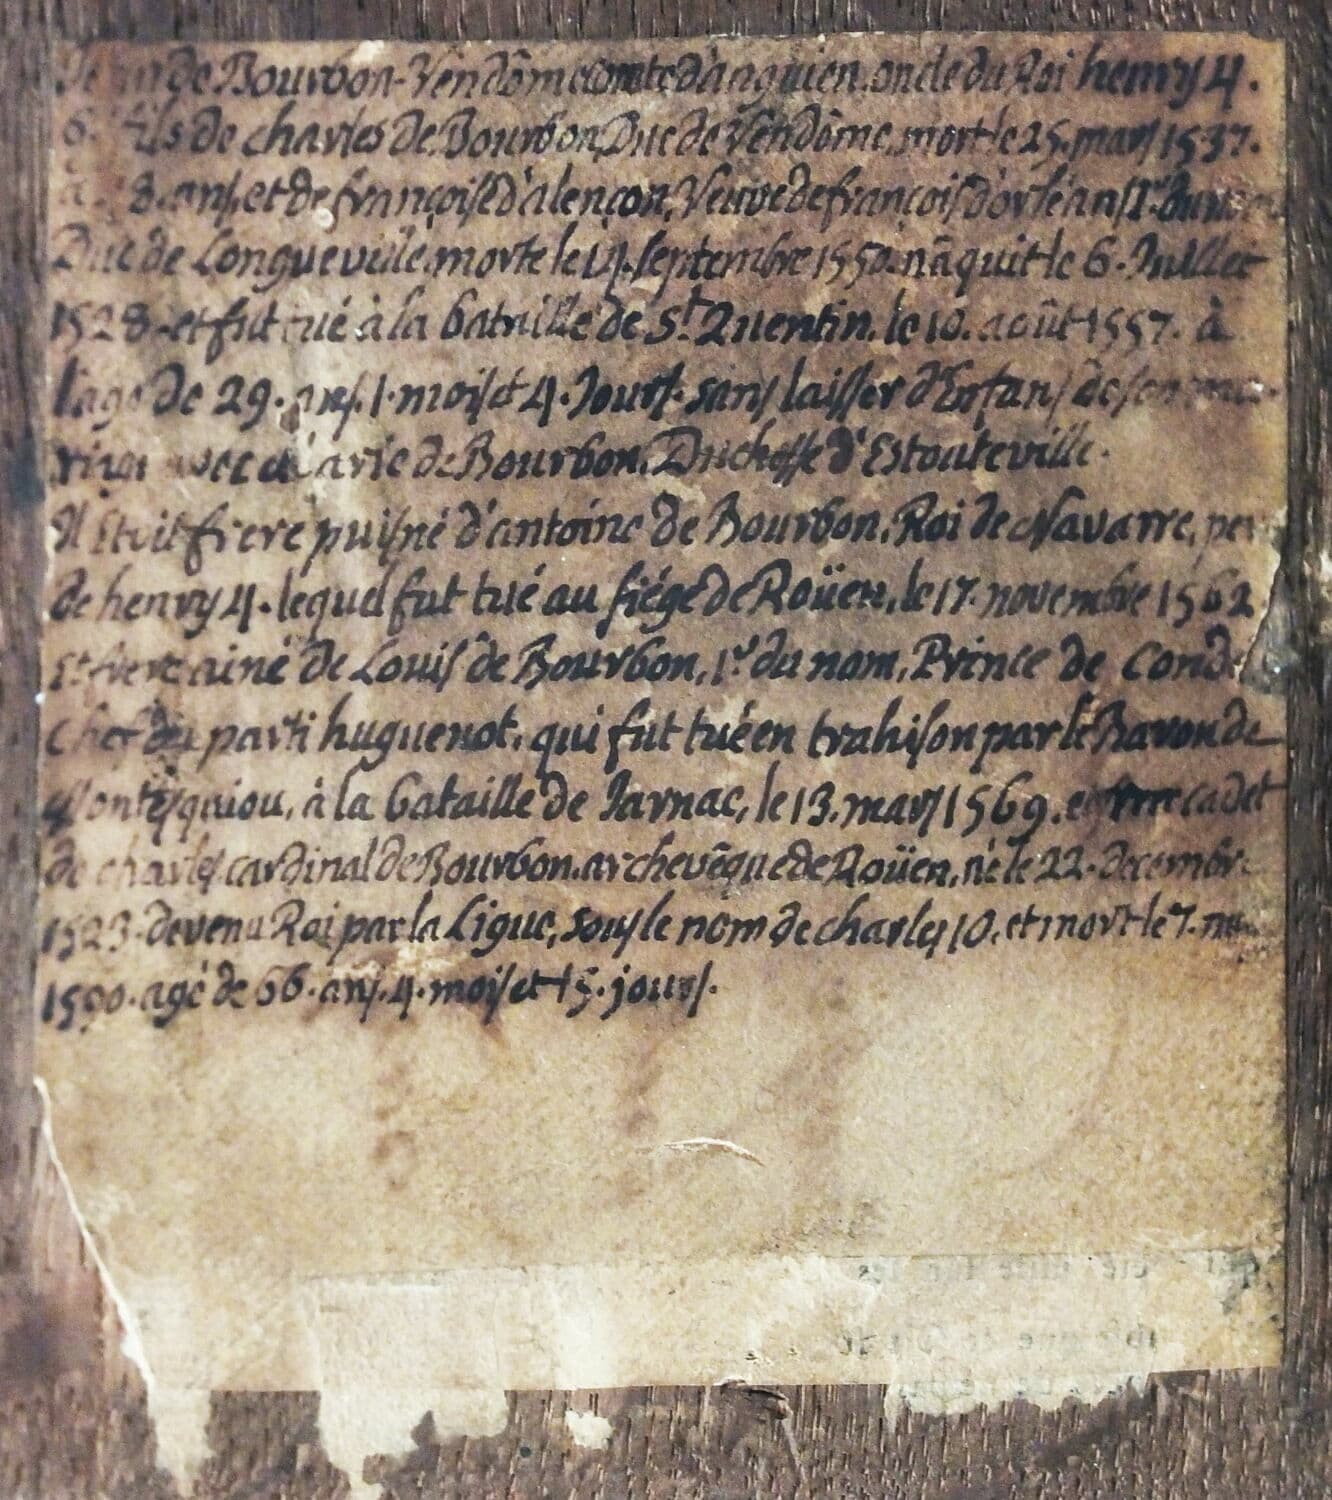 de Bourbon-Vendôme comte d'anguien, oncle du Roi henry 4.
6. fils de charles de Bourbon, Duc de Vendôme, mort le 25. mars 1537.
8. ans, et de françoise d'alençon, Veuve de françois d'orléans 1.er du nom
Duc de Longueville, morte le 14. septembre 1550. nâquit le 6. Juillet
1528. et fut tué à la bataille de St. Quentin, le 10. août 1557. à
l'age de 29. ans, 1. mois et 4. Jours. sans laisser d'Enfans de son ma-
riage avec Marie de Bourbon, Duchesse d'Estouteville.
Il Etoit frere puisné d'antoine de Bourbon, Roi de Navarre, per
de henry 4. lequel fut tué au siége de Roüen, le 17. novembre 1562
Et frere ainé de Louis de Bourbon, 1.er du nom, Prince de Condé
chef du parti huguenot, qui fut tué en trahison par le Baron de
Montesquiou, à la bataille de Jarnac, le 13. mars 1569. et cadet
de charles cardinal de Bourbon, archevêque de Roüen, né le 22. decembre
1523. devenu Roi par la Ligue, sous le nom de charles 10. et mort le 7.
1590. agé de 66. ans, 4. mois et 15. jours.